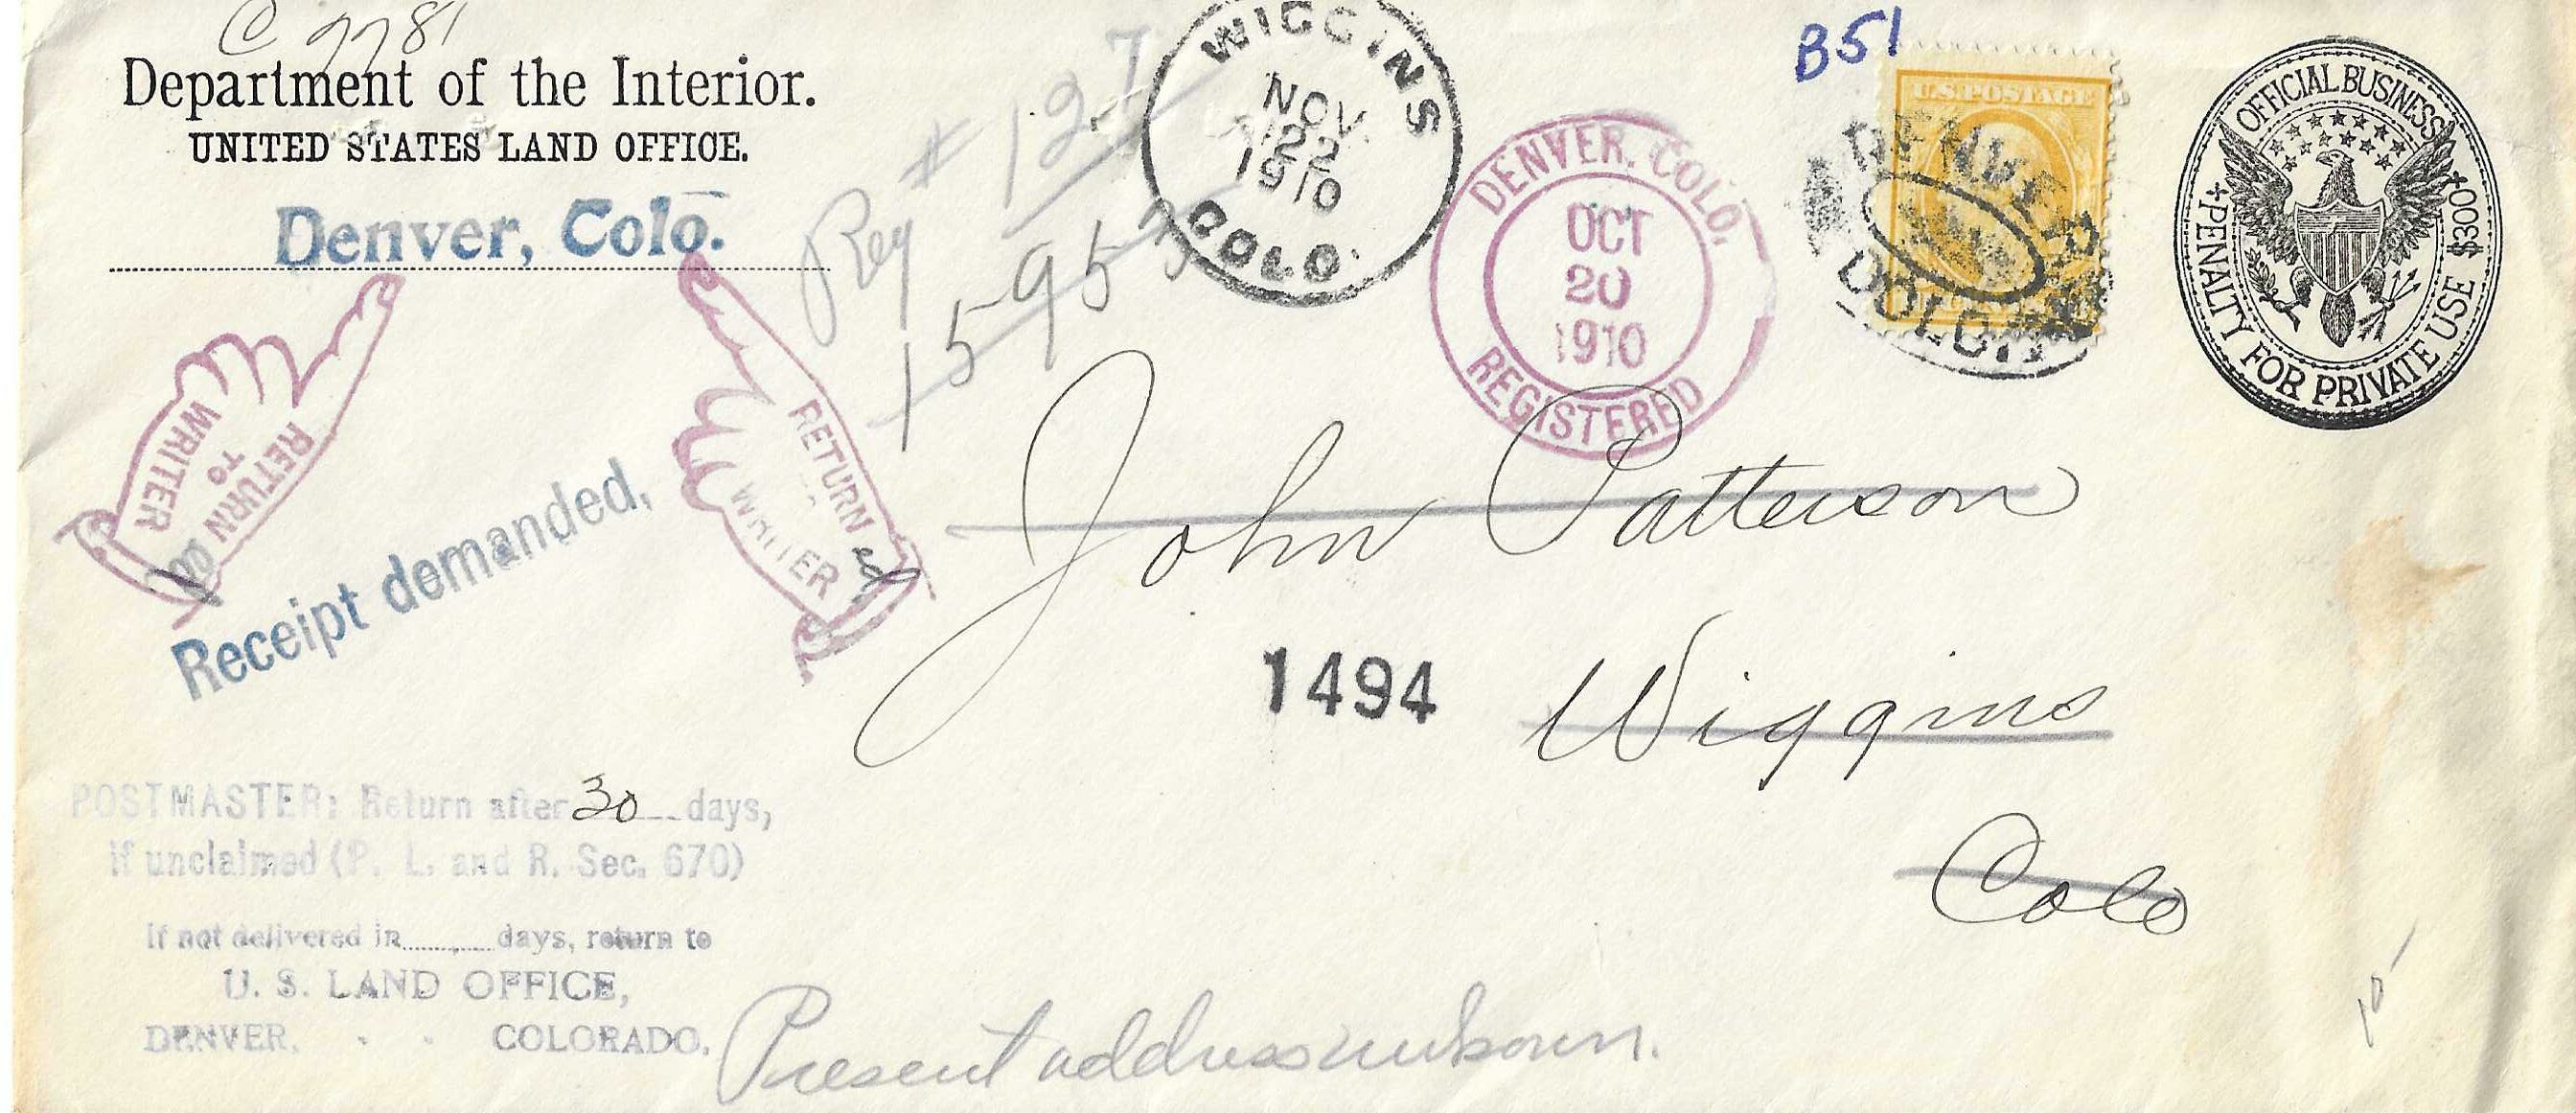 C 9781
Department of the Interior.
UNITED STATES LAND OFFICE.
Denver, Colo.
Reg # 127
15953
WIGGINS
NOV
22
1910
COLO.
DENVER, COLO.
OCT
20
1910
REGISTERED
B51
U.S. POSTAGE
DENVER
COLO.
OFFICIAL BUSINESS
PENALTY FOR PRIVATE USE $300
RETURN
TO
WRITER
RETURN
WRITER
Receipt demanded,
John Patterson
1494
Wiggins
Colo
POSTMASTER: Return after 30 days,
if unclaimed (P. L. and R. Sec. 670)
If not delivered in ........ days, return to
U. S. LAND OFFICE,
DENVER, - - COLORADO.
Present address unknown.
10